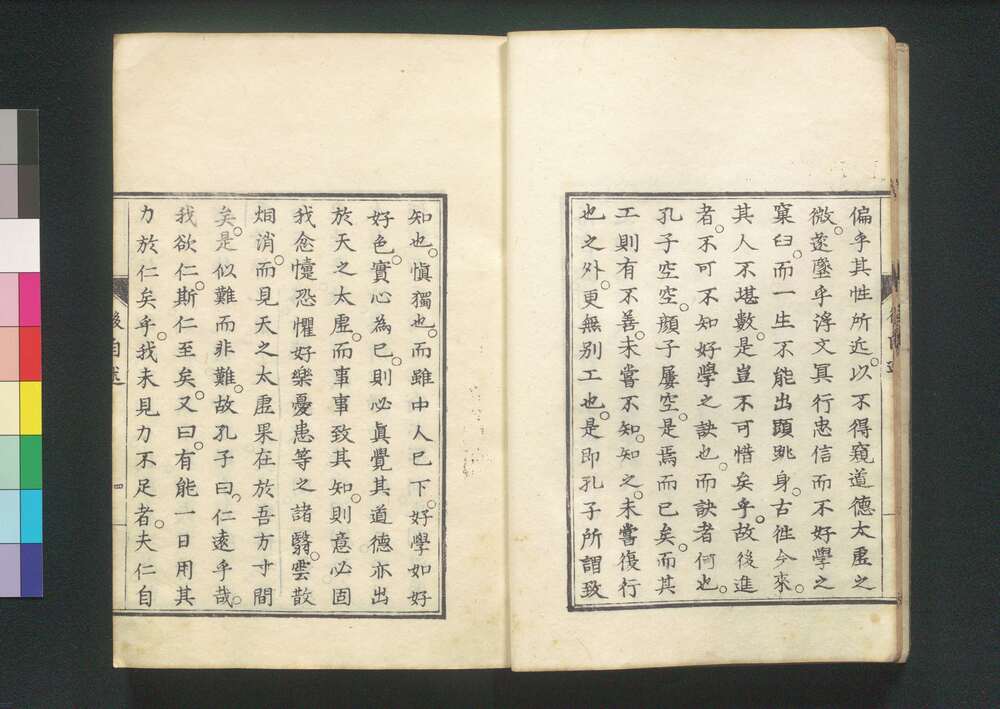 偏乎其性所近。以不得窺道德太虛之
微。遂墮乎浮文冥行忠信而不好學之
窠臼。而一生不能出頭跳身。古徃今來。
其人不堪數。是豈不可惜矣乎。故後進
者。不可不知好學之訣也。而訣者何也。
孔子空空。顏子屢空。是焉而已矣。而其
工則有不善。未嘗不知。知之。未嘗復行
也之外。更無別工也。是即孔子所謂致
知也。愼獨也。而雖中人已下。好學如好
好色。實心為己。則必眞覺其道德亦出
於天之太虛。而事事致其知。則意必固
我忿懥恐懼好樂憂患等之諸翳。雲散
烟消。而見天之太虛果在於吾方寸間
矣。是似難而非難。故孔子曰。仁遠乎哉。
我欲仁。斯仁至矣。又曰。有能一日用其
力於仁矣乎。我未見力不足者。夫仁自
後自述
四